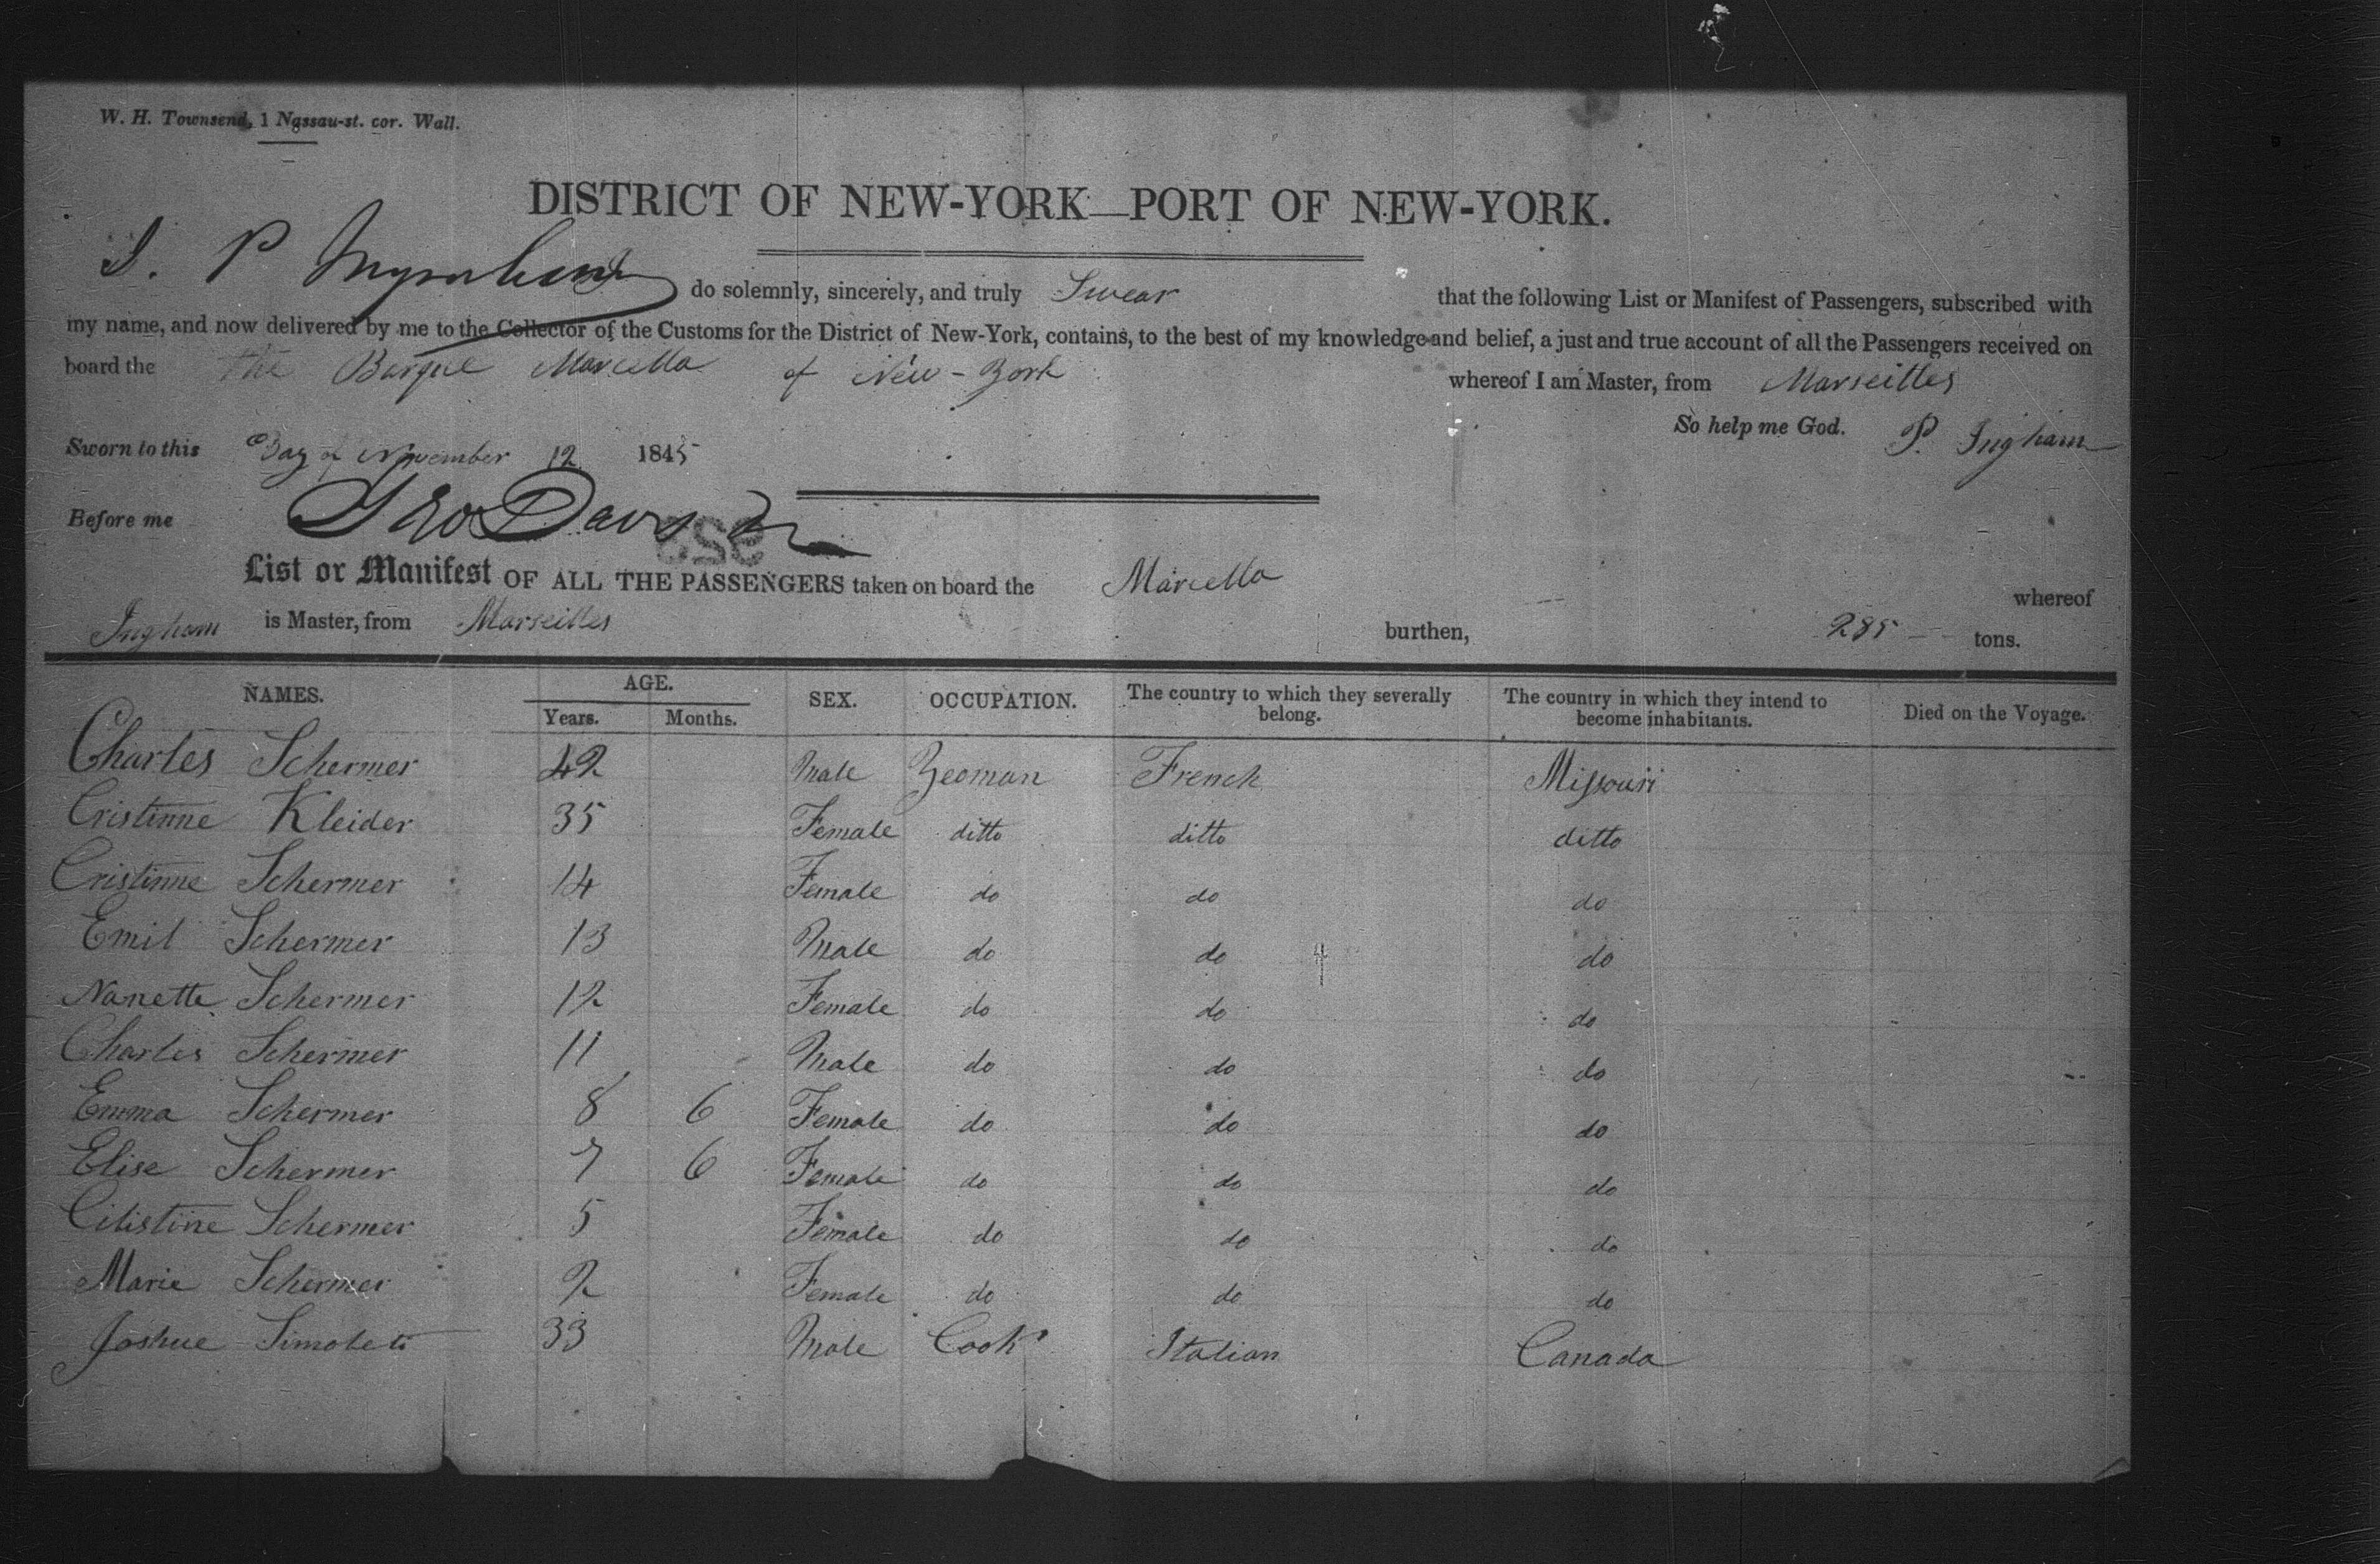 W. H. Townsend, 1 Nassau-st. cor. Wall.
DISTRICT OF NEW-YORK—PORT OF NEW-YORK.
I. P do solemnly, sincerely, and truly Swear that the following List or Manifest of Passengers, subscribed with
my name, and now delivered by me to the Collector of the Customs for the District of New-York, contains, to the best of my knowledge and belief, a just and true account of all the Passengers received on
board the the Barque Marcella of New-York whereof I am Master, from Marseilles
So help me God. P. Ingham
Sworn to this Day of November 12 1845
Before me Geo Davis
List or Manifest OF ALL THE PASSENGERS taken on board the Marcella whereof
Ingham is Master, from Marseilles burthen, 285 tons.
NAMES. AGE. SEX. OCCUPATION. The country to which they severally belong. The country in which they intend to become inhabitants. Died on the Voyage.
Years. Months.
Charles Schermer 42 Male Yeoman French Missouri
Cristinne Kleider 35 Female ditto ditto ditto
Cristinne Schermer 14 Female do do do
Emil Schermer 13 Male do do do
Nanette Schermer 12 Female do do do
Charles Schermer 11 Male do do do
Emma Schermer 8 6 Female do do do
Elise Schermer 7 6 Female do do do
Cilistine Schermer 5 Female do do do
Marie Schermer 2 Female do do do
Joshue Simoleti 33 Male Cook Italian Canada